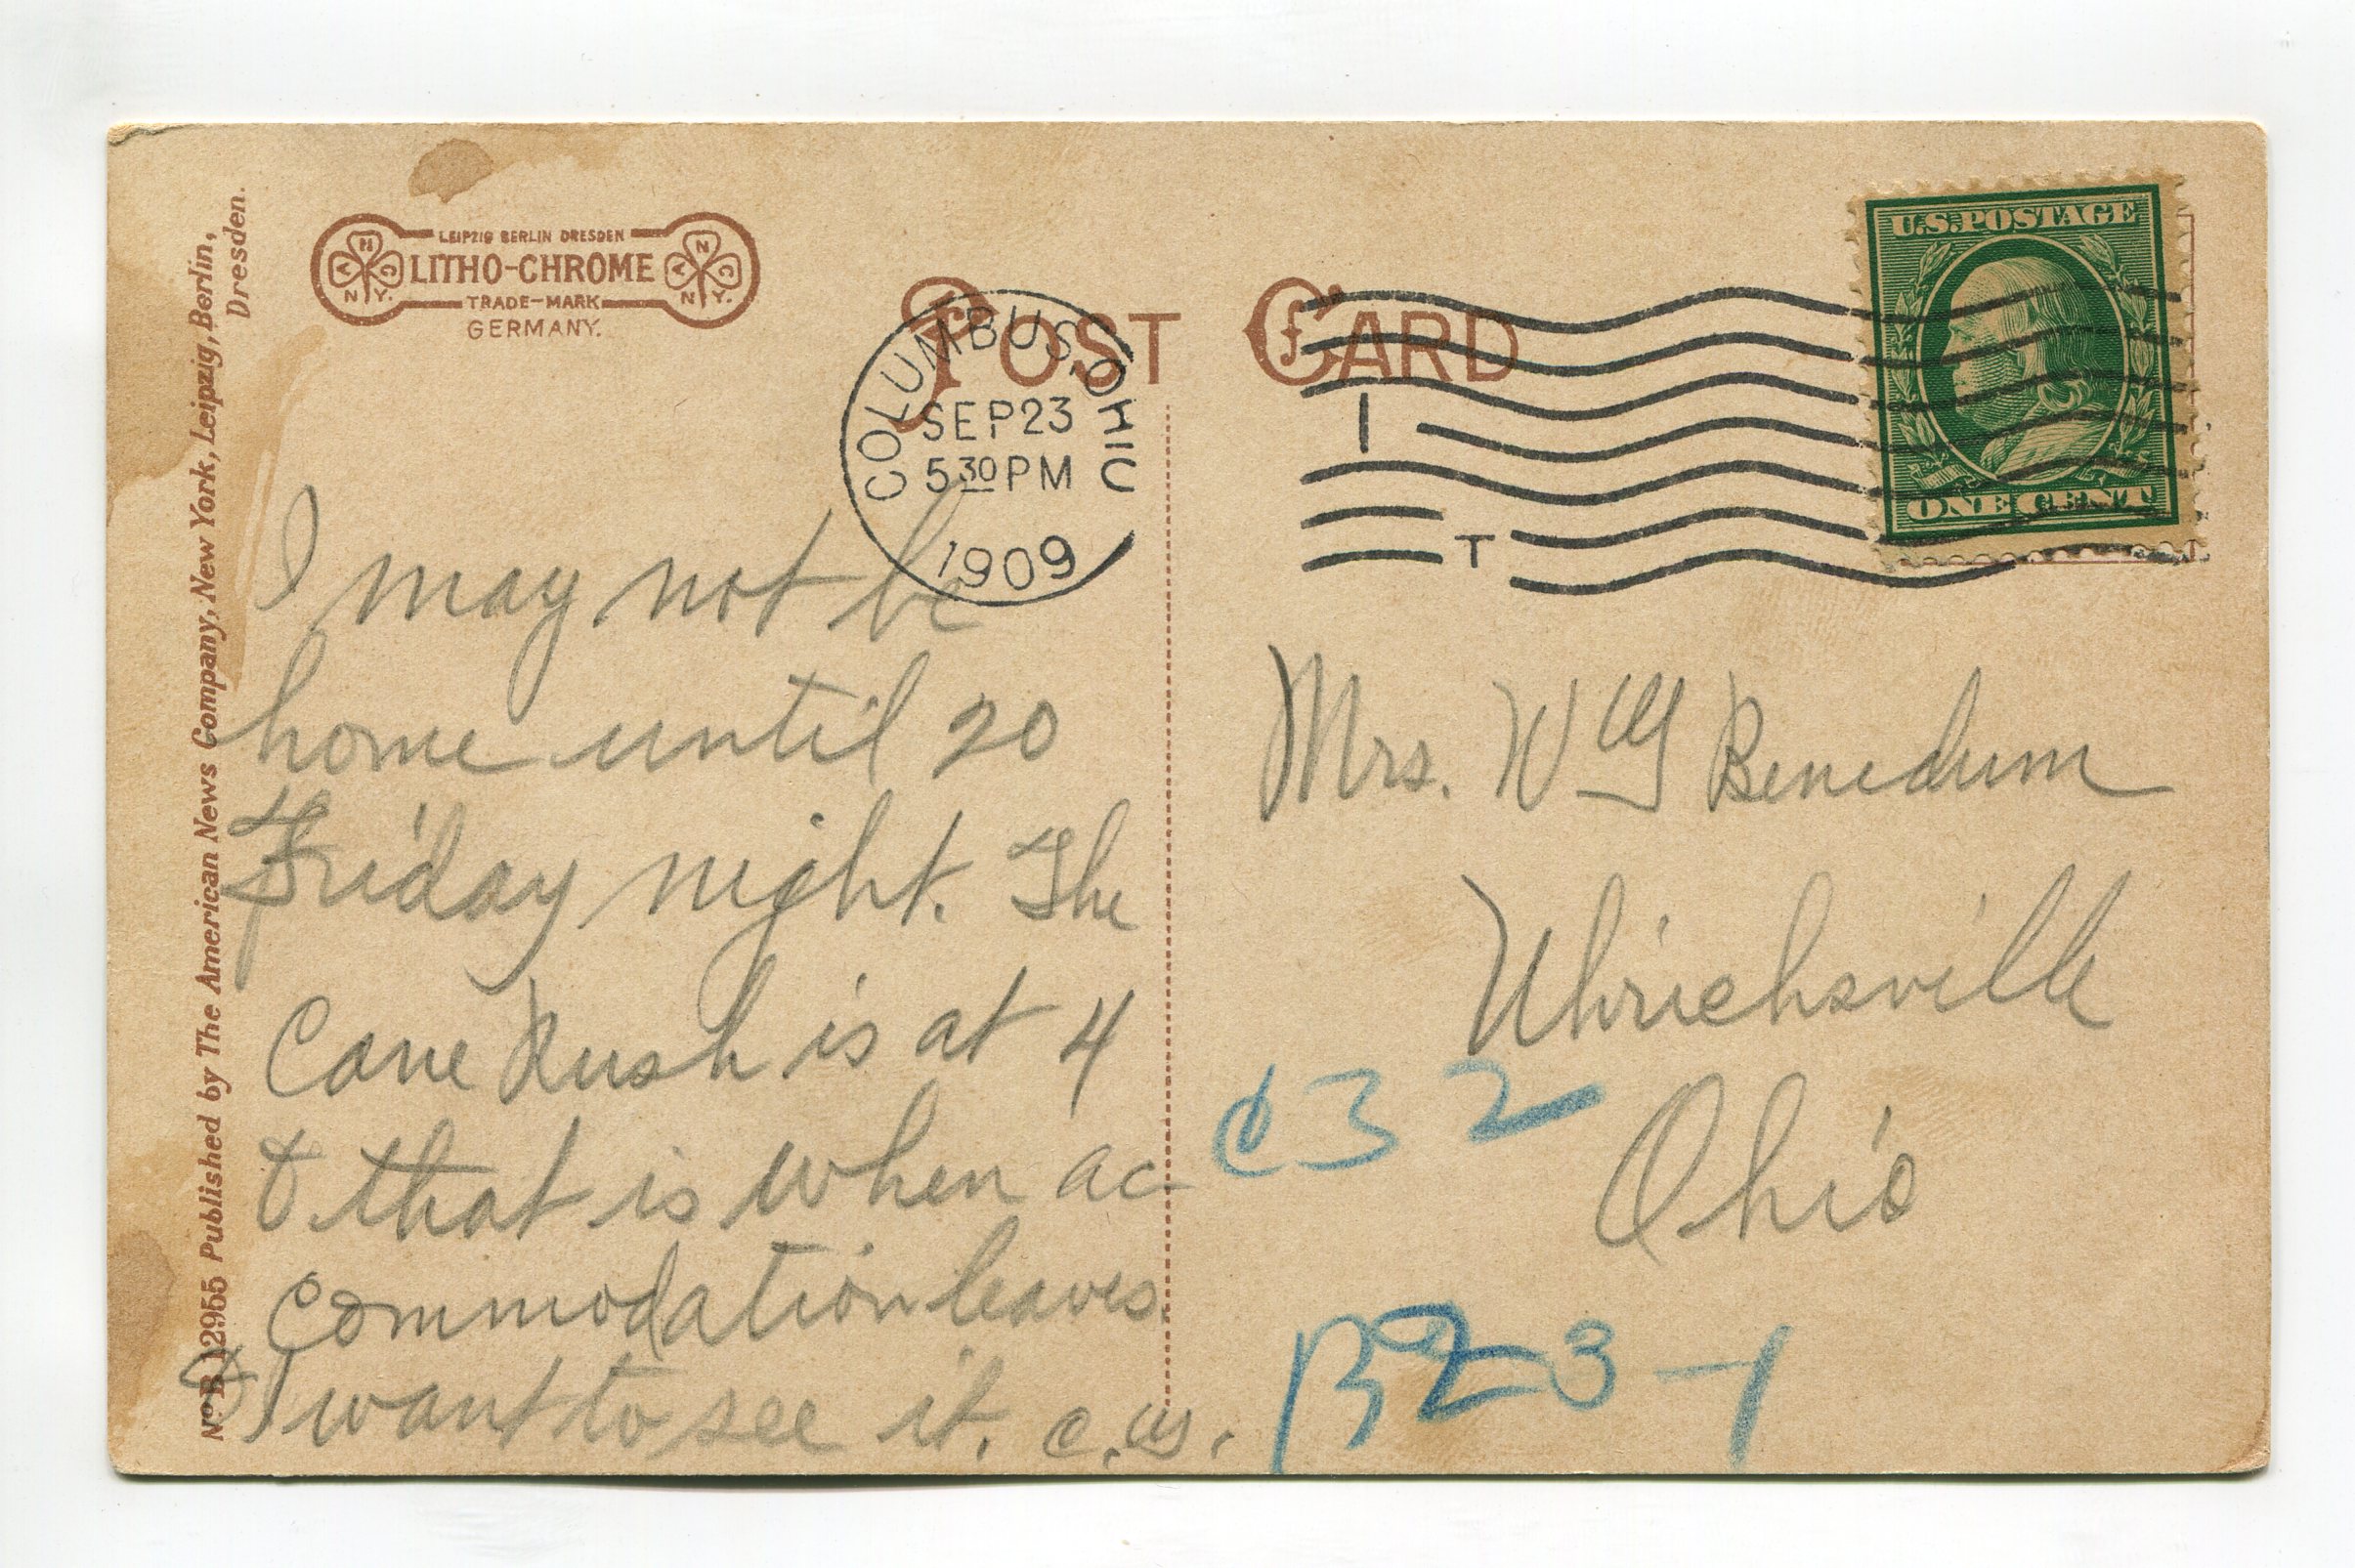 No. B 12955 Published by The American News Company, New York, Leipzig, Berlin,
Dresden.
LEIPZIG BERLIN DRESDEN
N
V C
N Y.
LITHO-CHROME
N
V C
N Y.
TRADE-MARK
GERMANY.
POST CARD
COLUMBUS, OHIO
SEP 23
5 30 PM
1909
1
T
U.S. POSTAGE
ONE CENT
I may not be
home until 20
Friday night. The
Cane Rush is at 4
& that is when ac-
commodation leaves.
& I want to see it. C.W.
Mrs. Wm Benedum
Uhrichsville
Ohio
C 3 2
B 2 3-1